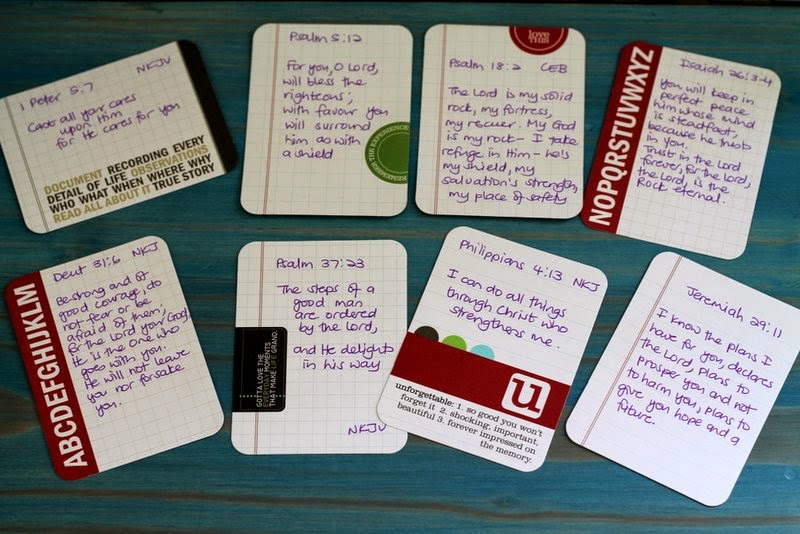 1 Peter 5:7 NKJV
Cast all your cares
upon Him
for He cares for you
DOCUMENT RECORDING EVERY
DETAIL OF LIFE OBSERVATIONS
WHO WHAT WHEN WHERE WHY
READ ALL ABOUT IT TRUE STORY
Psalm 5:12
For you, O Lord,
will bless the
righteous;
with favour you
will surround
him as with
a shield
REMEMBER THE EXPERIENCE
love
THIS
Psalm 18:2 CEB
The Lord is my solid
rock, my fortress,
my rescuer. My God
is my rock - I take
refuge in Him - he's
my shield, my
salvation's strength,
my place of safety
NOPQRSTUVWXYZ
Isaiah 26:3-4
You will keep in
perfect peace
him whose mind
is steadfast,
because he trusts
in you.
Trust in the Lord
forever, for the Lord,
the Lord, is the
Rock eternal.
ABCDEFGHIJKLM
Deut 31:6 NKJ
Be strong and of
good courage, do
not fear or be
afraid of them;
for the Lord your God,
He is the one who
goes with you.
He will not leave
you nor forsake
you.
Psalm 37:23
The steps of a
good man
are ordered
by the Lord,
and He delights
in his way
NKJV
GOTTA LOVE THE
EVERYDAY MOMENTS
THAT MAKE LIFE GRAND.
Philippians 4:13 NKJ
I can do all things
through Christ who
strengthens me.
u
unforgettable: 1. so good you won't
forget it 2. shocking, important,
beautiful 3. forever impressed on
the memory.
Jeremiah 29:11
I know the plans I
have for you, declares
the Lord, plans to
prosper you and not
to harm you, plans to
give you hope and a
future.